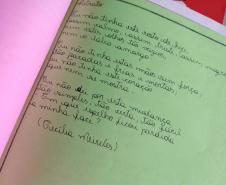 Retrato
Eu não tinha este rosto de hoje,
assim calmo, assim triste, assim magro
nem estes olhos tão vazios,
nem o lábio amargo
Eu não tinha estas mãos sem força,
tão paradas e frias e mortas,
eu não tinha este coração
que nem se mostra.
Eu não dei por esta mudança
tão simples, tão certa, tão fácil
Em que espelho ficou perdida
a minha face?
(Cecília Meireles)